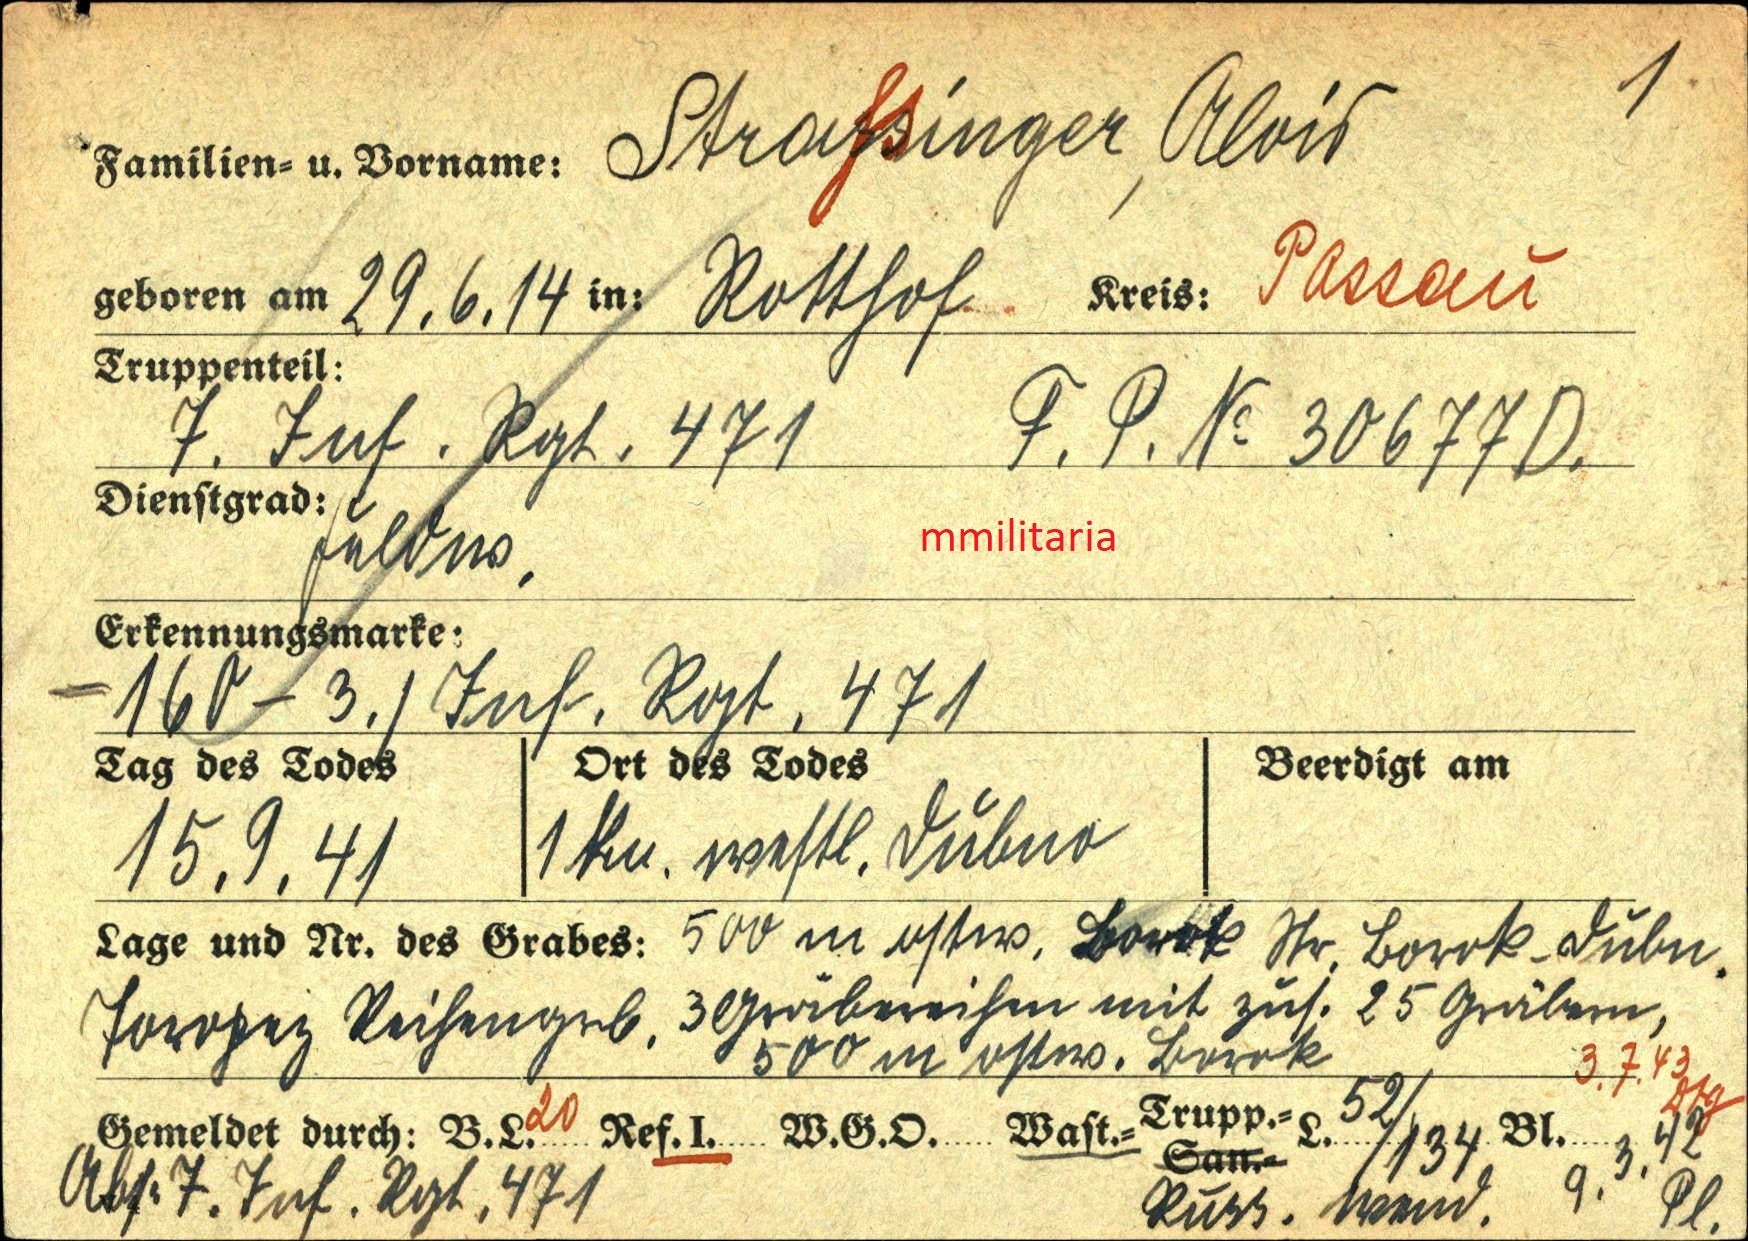 1
Familien- u. Vorname: Strassinger, Alois
geboren am 29.6.14 in: Rotthof Kreis: Passau
Truppenteil:
7. Inf. Rgt. 471 F. P. № 30677 D.
Dienstgrad:
Feldw.
mmilitaria
Erkennungsmarke:
- 160 - 3./ Inf. Rgt. 471
Tag des Todes Ort des Todes Beerdigt am
15.9.41 1 km. westl. Dubno
Lage und Nr. des Grabes: 500 m ostw. Borok Str. Borok-Dubn.
Toropez Reihengrb. 3 Gräbereihen mit zus. 25 Gräbern,
500 m ostw. Borok
3.7.43
Gemeldet durch: B.L. 20 Ref. I. W.G.O. Wast.- Trupp.- San.- L. 52/134 Bl. 9.3.42
Abs. 7. Inf. Rgt. 471 Russ. Pl.